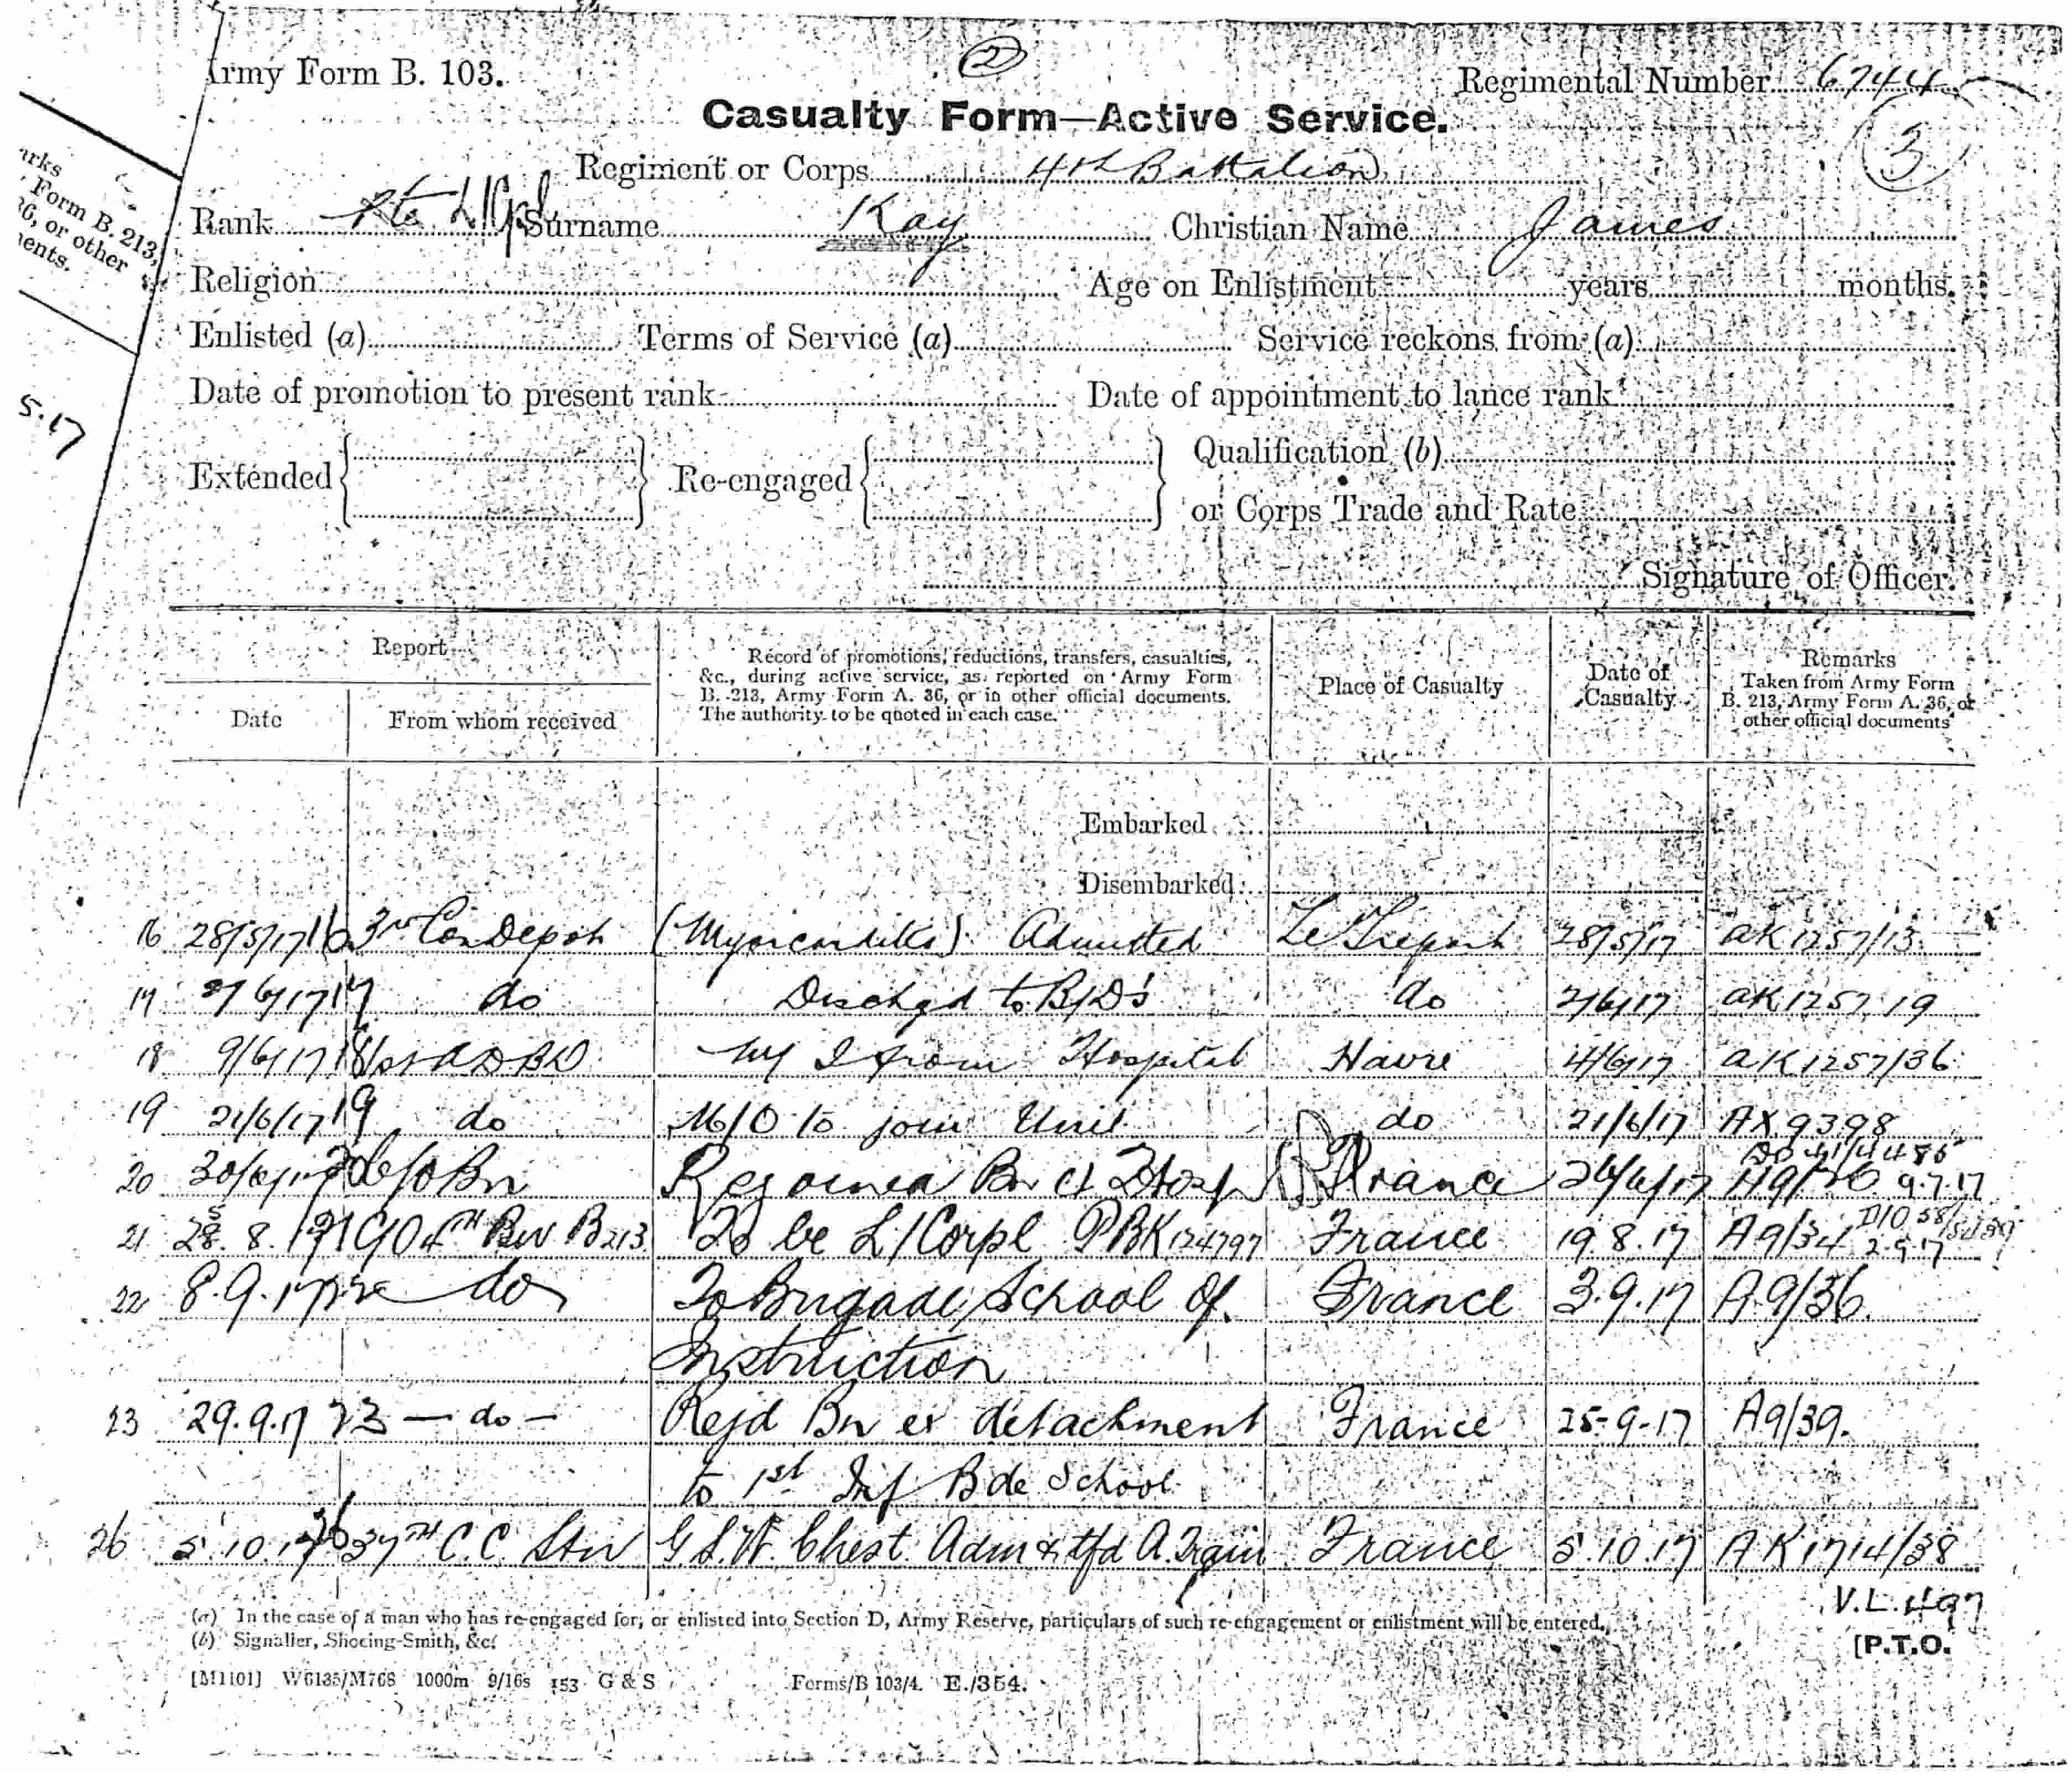 2
Army Form B. 103.
Regimental Number 6744
Casualty Form—Active Service.
3
Regiment or Corps 4th Battalion
Rank Pte L/Cpl Surname Kay Christian Name James
Religion Age on Enlistment years months.
Enlisted (a) Terms of Service (a) Service reckons from (a)
Date of promotion to present rank Date of appointment to lance rank
Extended Re-engaged Qualification (b)
or Corps Trade and Rate
Signature of Officer.
arks
Form B. 213,
36, or other
ments.
5.17
Report
Date From whom received
Record of promotions, reductions, transfers, casualties,
&c., during active service, as reported on Army Form
B. 213, Army Form A. 36, or in other official documents.
The authority to be quoted in each case.
Place of Casualty
Date of
Casualty
Remarks
Taken from Army Form
B. 213, Army Form A. 36, or
other official documents
Embarked
Disembarked
16 28/5/17 16 3rd Con Depot (Myocarditis) Admitted Le Treport 28/5/17 AK 1257/13
17 2/6/17 17 do Dischgd to B/D's do 2/6/17 AK 1257 19
18 9/6/17 18 1st A D B D from Hospital Havre 4/6/17 AK 1257/36
19 21/6/17 19 do M/O to join Unit do 21/6/17 AX 9398
20 30/6/17 20 C/O Bn Rejoined Bn ex Hosp France 24/6/17 9.7.17
21 28.8.17 21 C/O 4th Bn B213 To be L/Corpl PBK 124797 France 19.8.17 A9/34 2.9.17
22 8.9.17 22 do To Brigade School of France 3.9.17 A9/36.
Instruction
23 29.9.17 23 — do — Rejd Bn ex detachment France 25-9-17 A9/39.
to 1st Inf Bde School
26 5.10.17 26 37th C.C. Stn G.S.W. Chest. Adm & tfd A. Train France 5.10.17 AK1714/38
V.L. 497
(a) In the case of a man who has re-engaged for, or enlisted into Section D, Army Reserve, particulars of such re-engagement or enlistment will be entered.
(b) Signaller, Shoeing-Smith, &c.
[P.T.O.
[M1101] W6135/M768 1000m 9/16s 153 G & S Forms/B 103/4. E./354.